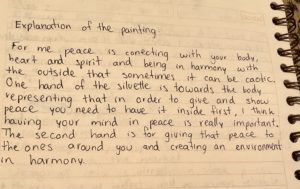 Explanation of the painting
For me peace is conecting with your body,
heart and spirit and being in harmony with
the outside that sometimes it can be caotic.
One hand of the silvette is towards the body
representing that in order to give and show
peace you need to have it inside first, I think
having your mind in peace is really important.
The second hand is for giving that peace to
the ones around you and creating an environment
in harmony.